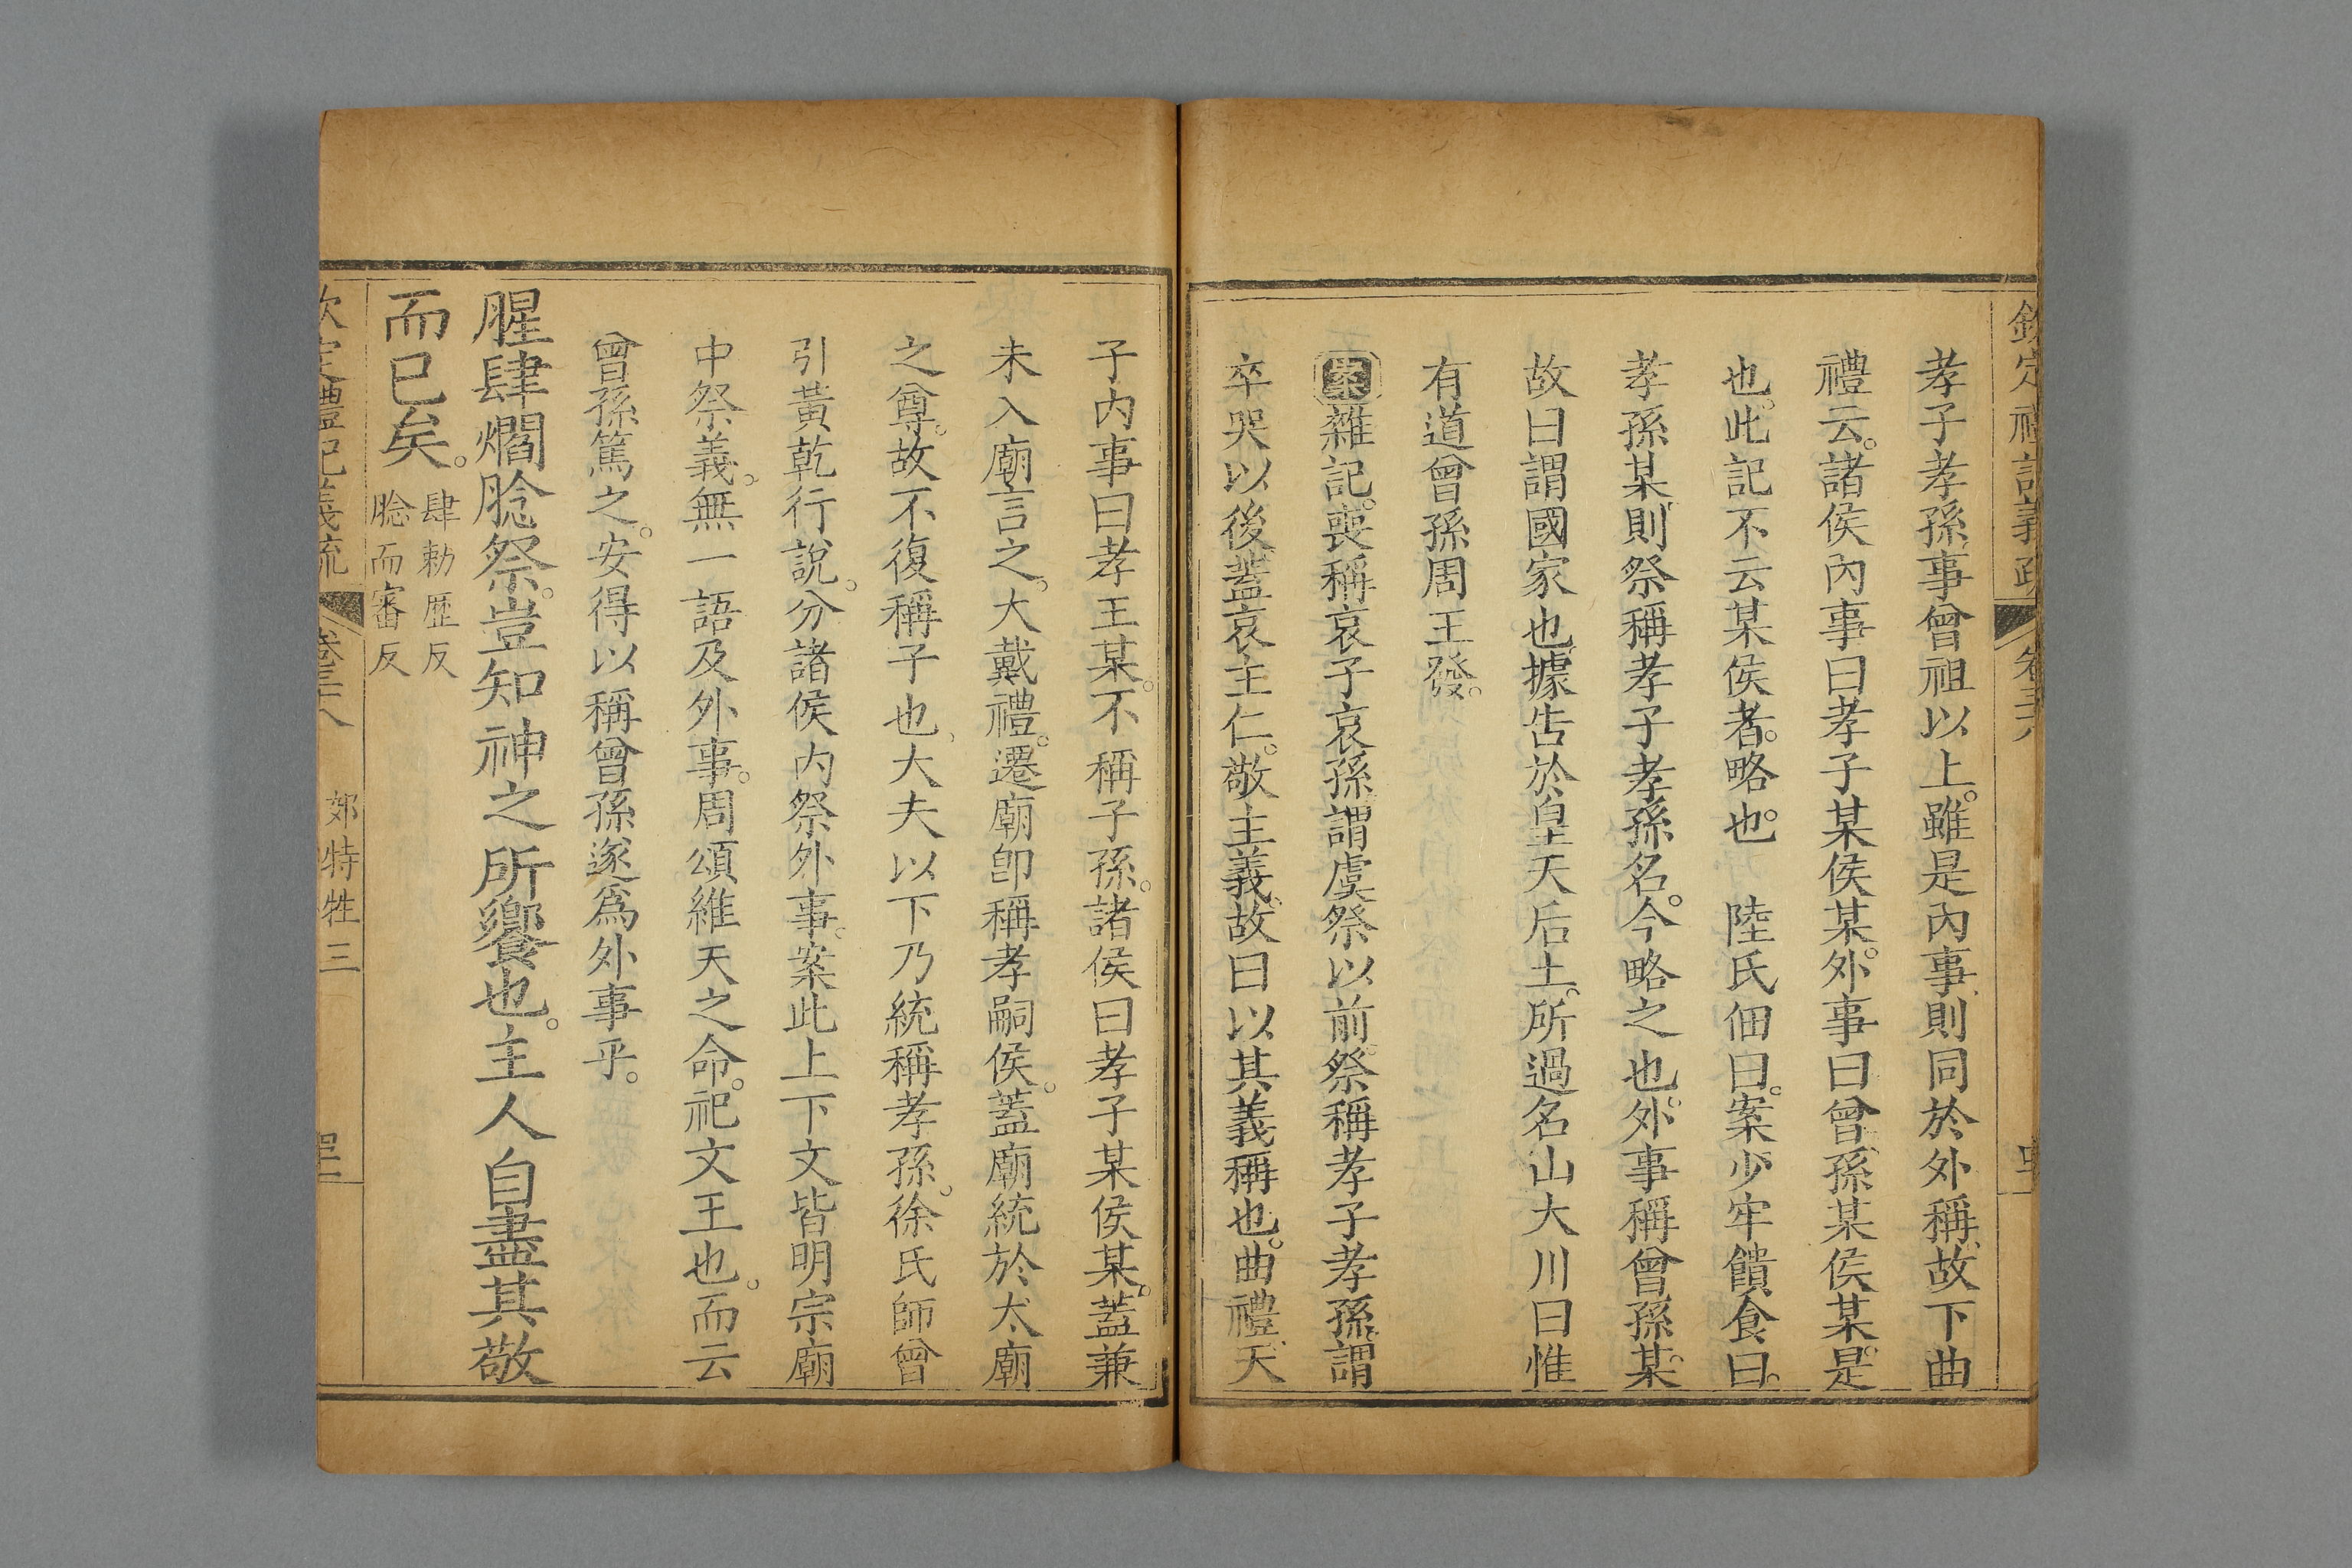 孝子孝孫事曾祖以上。雖是內事、則同於外稱、故下曲
禮云。諸侯內事曰孝子某侯某。外事曰曾孫某侯某。是
也。此記不云某侯者。略也。　陸氏佃曰。案少牢饋食曰。
孝孫某、則祭稱孝子孝孫名。今略之也。外事稱曾孫某。
故曰謂國家也、據告於皇天后土。所過名山大川曰惟
有道曾孫周王發。
案雜記。喪稱哀子哀孫、謂虞祭以前。祭稱孝子孝孫、謂
卒哭以後、蓋哀主仁。敬主義、故曰以其義稱也。曲禮、天
子內事曰孝王某。不稱子孫。諸侯曰孝子某侯某。蓋兼
未入廟言之。大戴禮。遷廟卽稱孝嗣侯。蓋廟統於太廟
之尊。故不復稱子也、大夫以下乃統稱孝孫。徐氏師曾
引黃乾行說。分諸侯內祭外事。案此上下文皆明宗廟
中祭義。無一語及外事。周頌維天之命。祀文王也。而云
曾孫篤之。安得以稱曾孫遂爲外事乎。
腥肆爓腍祭。豈知神之所饗也。主人自盡其敬
而已矣。肆勅歷反
腍而審反
郊特牲三